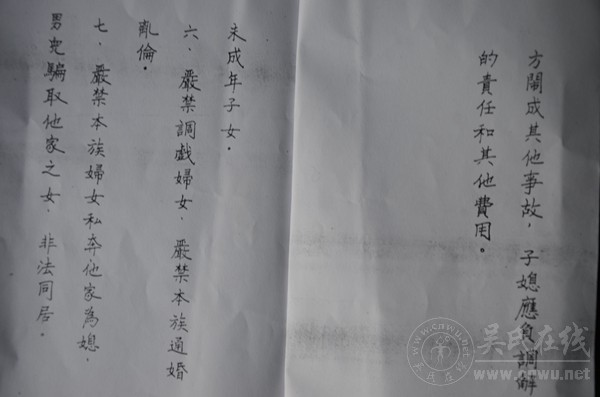 方鬧成其他事故，子媳應負調解
的責任和其他費用。
未成年子女。
六、嚴禁調戲婦女、嚴禁本族通婚
亂倫。
七、嚴禁本族婦女私奔他家為媳，
男兒騙取他家之女，非法同居。
吴氏在线
www.cnwu.net